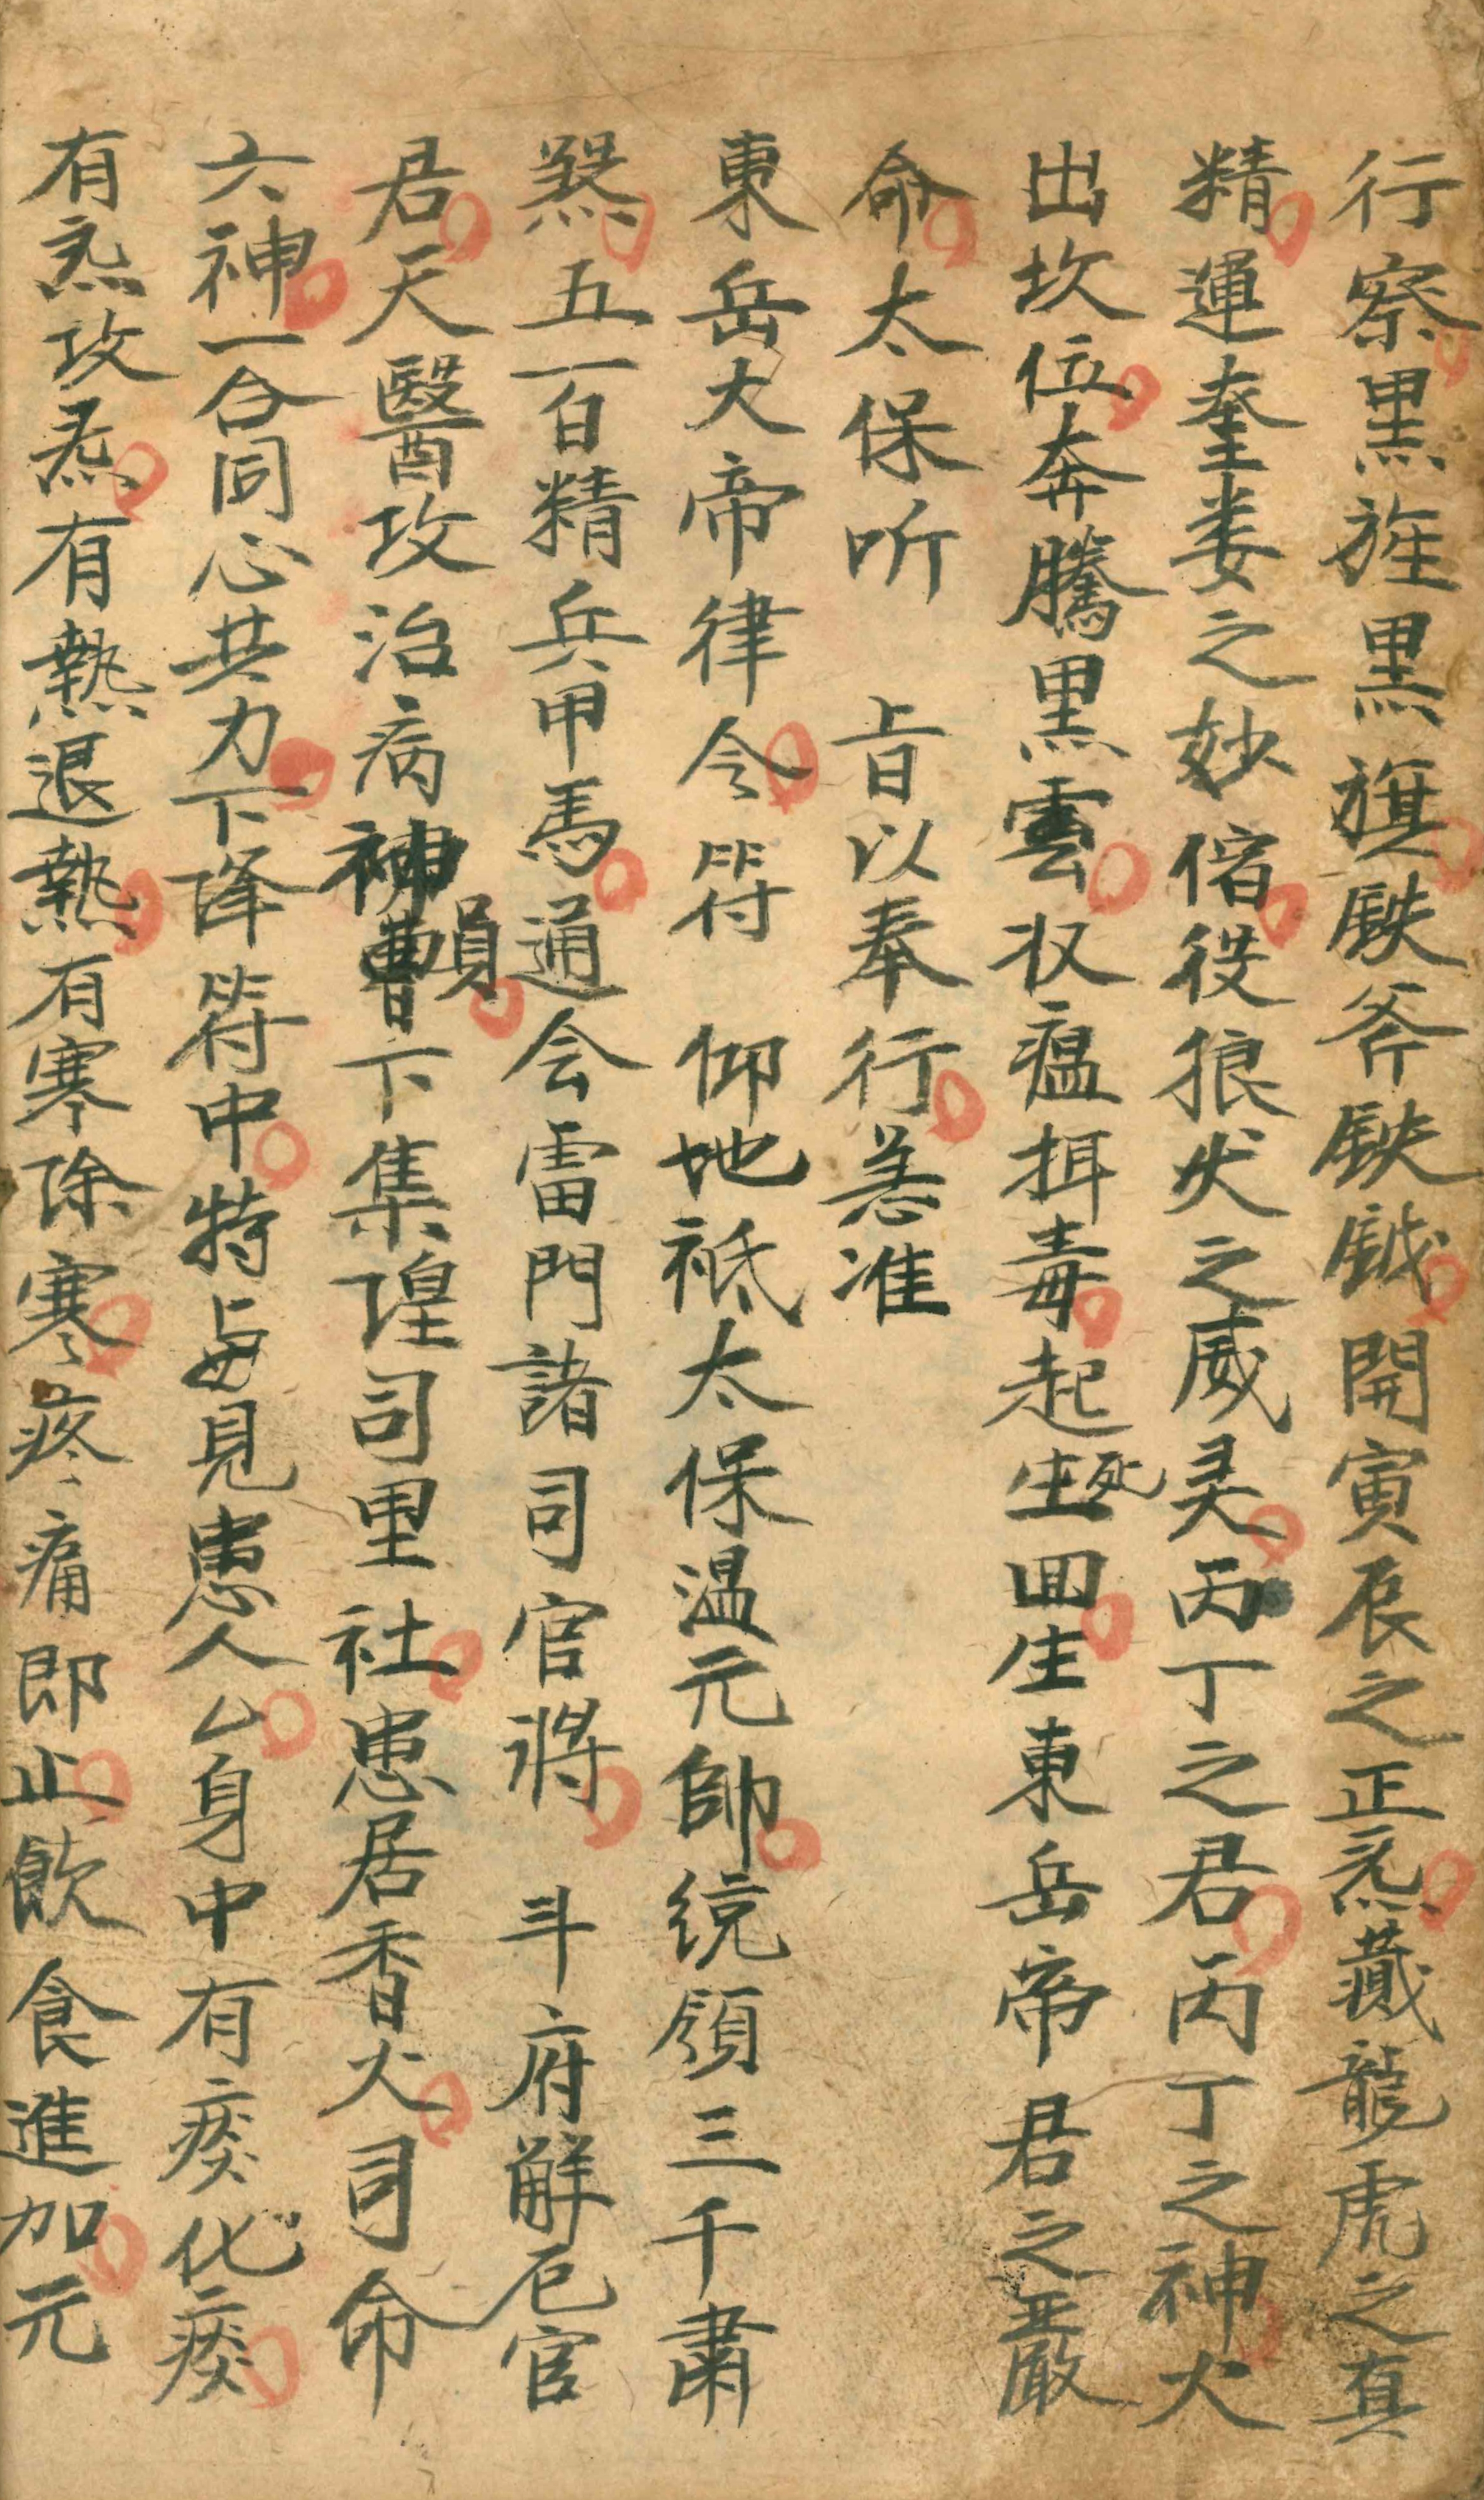 行察黒旌黒旗鈇斧鈇鉞開寅辰之正炁藏龍虎之真
精運奎娄之妙偹役狼犬之威灵丙丁之君丙丁之神火
出坎位奔騰黒雲收瘟摄毒起死回生東岳帝君之嚴
命太保听 旨以奉行急准
東岳大帝律令符 仰地祇太保温元帥统領三千肅
煞五百精兵甲馬通会雷門諸司官將 斗府解厄官
君天醫攻治病神員下集隍司里社患居香火司命
六神一合同心共力下降符中特与見患人厶身中有痰化痰
有炁攻炁有熱退熱有寒除寒疼痛即止飲食進加元